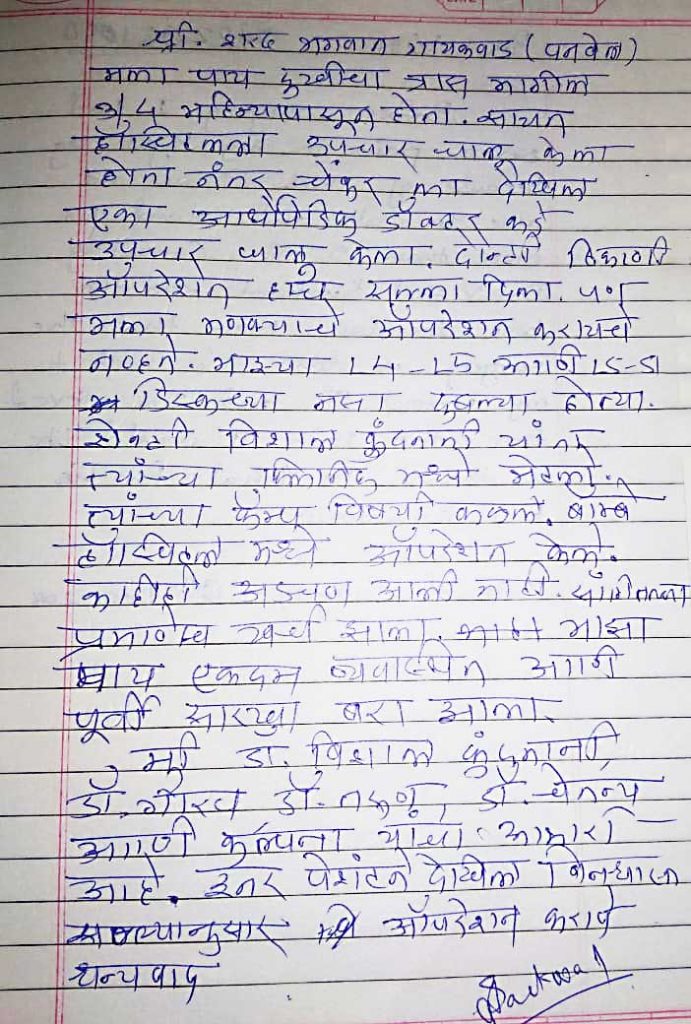 श्री. शरद भगवान गायकवाड (पनवेल)
मला पाय दुखीचा त्रास मागील
३/४ महिन्यापासून होता. सायन
हॉस्पिटलला उपचार चालू केला
होता नंतर चेंबूर ला देखिल
एका आर्थोपेडिक डॉक्टर कडे
उपचार चालू केला. दोन्ही ठिकाणी
ऑपरेशन हाच सल्ला दिला. पण
मला मणक्याचे ऑपरेशन करायचे
नव्हते. माझ्या L4-L5 आणि L5-S1
डिस्कच्या नसा दबल्या होत्या.
शेवटी विशाल कुंदनानी यांना
त्यांच्या क्लिनिक मध्ये भेटलो.
त्यांच्या कॅम्प विषयी कळले. बॉम्बे
हॉस्पिटल मध्ये ऑपरेशन केले.
काहीही अडचण आली नाही. सांगितल्या
प्रमाणेच खर्च झाला. माझा
पाय एकदम व्यवस्थित आणि
पूर्वी सारखा बरा झाला.
मी डॉ. विशाल कुंदनानी,
डॉ. गौरव डॉ. तरुण, डॉ. चैतन्य
आणि कल्पना यांचा आभारी
आहे. इतर पेशंटने देखिल
सल्ल्यानुसार ऑपरेशन करावे
धन्यवाद